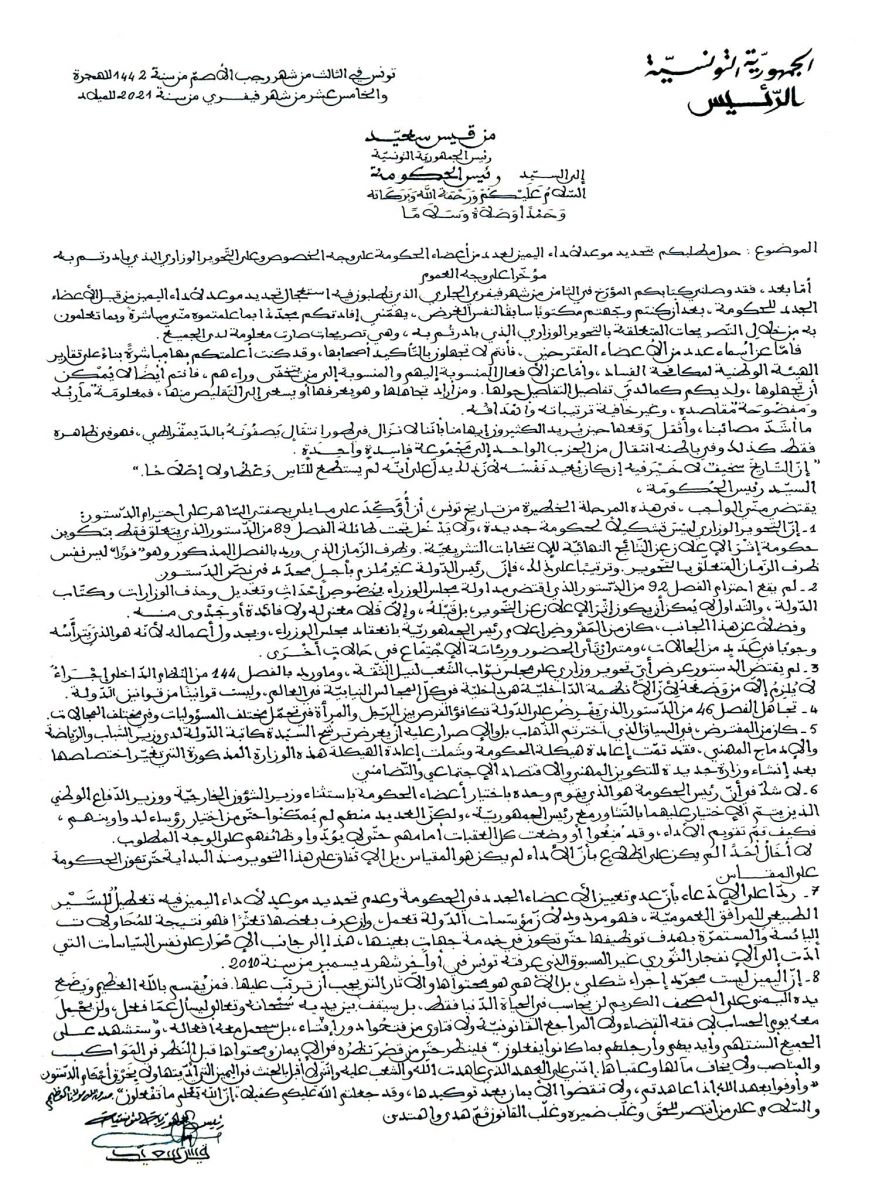 الجمهورية التونسية
الرئيس
تونس في الثالث من شهر رجب الأصم من سنة 1442 للهجرة
والخامس عشر من شهر فيفري من سنة 2021 للميلاد
من قيس سعيد
رئيس الجمهورية التونسية
إلى السيد رئيس الحكومة
السلام عليكم ورحمة الله وبركاته
وحمدا وصلاة وسلاما
الموضوع : حول مطلبكم بتحديد موعد لأداء اليمين لعدد من أعضاء الحكومة على وجه الخصوص وعلى التحوير الوزاري الذي بادرتم به
مؤخرا على وجه العموم
أما بعد، فقد وصلني كتابكم المؤرخ في الثامن من شهر فيفري الجاري الذي تطلبون فيه استعجال تحديد موعد لأداء اليمين من قبل الأعضاء
الجدد للحكومة، بعد أن كنتم وجهتم مكتوبا سابقا لنفس الغرض، يهمني إفادتكم مجددا بما علمتموه مني مباشرة وبما تعلمون
به من خلال التصريحات المتعلقة بالتحوير الوزاري الذي بادرتم به، وهي تصريحات صارت معلومة لدى الجميع.
فأما عن أسماء عدد من الأعضاء المقترحين، فأنتم لا تجهلون بالتأكيد أصحابها، وقد كنت أعلمتكم بها مباشرة بناء على تقارير
الهيئة الوطنية لمكافحة الفساد، وأما عن الأفعال المنسوبة إليهم والمنسوبة إلى من يتخفى وراءهم، فأنتم أيضا لا يمكن
أن تجهلوها، ولديكم كما لدي تفاصيل التفاصيل حولها. ومن أراد تجاهلها وهو يعرفها أو يسعى إلى التقليص منها، فمعلومة مآربه
ومفضوحة مقاصده، وغير خافية ترتيباته وأهدافه.
ما أشد مصائبنا، وأثقل وقعها حين يريد الكثيرون إيهامنا بأننا لا نزال في طور انتقال يصفونه بالديمقراطي، فهو في ظاهره
فقط كذلك وفي باطنه انتقال من الحزب الواحد إلى مجموعة فاسدة واحدة.
"إن التاريخ سخيف لا خير فيه إن كان يعيد نفسه لأن ذلك يدل على أنه لم يستطع للناس وعظا ولا إصلاحا."
السيد رئيس الحكومة،
يقتضي مني الواجب، في هذه المرحلة الخطيرة من تاريخ تونس، أن أؤكد على ما يلي بصفتي الساهر على احترام الدستور:
1- إن التحوير الوزاري ليس تشكيلا لحكومة جديدة، ولا يدخل تحت طائلة الفصل 89 من الدستور الذي يتعلق فقط بتكوين
حكومة إثر الإعلان عن النتائج النهائية للانتخابات التشريعية. وظرف الزمان الذي ورد بالفصل المذكور وهو "فورا" ليس نفس
ظرف الزمان المتعلق بالتحوير. وترتيبا على ذلك، فإن رئيس الدولة غير ملزم بأجل محدد في نص الدستور.
2- لم يقع احترام الفصل 92 من الدستور الذي اقتضى مداولة مجلس الوزراء بخصوص إحداث وتعديل وحذف الوزارات وكتاب
الدولة، والتداول لا يمكن أن يكون إثر الإعلان عن التحوير، بل قبله، وإلا فلا معنى له ولا فائدة أو جدوى منه.
وفضلا عن هذا الجانب، كان من المفروض إعلام رئيس الجمهورية بانعقاد مجلس الوزراء، وبجدول أعماله لأنه هو الذي يترأسه
وجوبا في عديد من الحالات، ومتى ارتأى الحضور ورئاسة الاجتماع في حالات أخرى.
3- لم يقتض الدستور عرض أي تحوير وزاري على مجلس نواب الشعب لنيل الثقة، وما ورد بالفصل 144 من النظام الداخلي إجراء
لا يلزم إلا من وضعه لأن الأنظمة الداخلية هي داخلية في كل المجالس النيابية في العالم، وليست قوانينا من قوانين الدولة.
4- تجاهل الفصل 46 من الدستور الذي يفرض على الدولة تكافؤ الفرص بين الرجل والمرأة في تحمل مختلف المسؤوليات وفي مختلف المجالات.
5- كان من المفترض، في السياق الذي اخترتم الذهاب بل والإصرار عليه أن يعرض ترشح السيدة كاتبة الدولة لدى وزير الشباب والرياضة
والإدماج المهني، فقد تمت إعادة هيكلة الحكومة وشملت إعادة الهيكلة هذه الوزارة المذكورة التي تغير اختصاصها
بعد إنشاء وزارة جديدة للتكوين المهني والاقتصاد الاجتماعي والتضامني
6- لا شك في أن رئيس الحكومة هو الذي يقوم وحده باختيار أعضاء الحكومة باستثناء وزير الشؤون الخارجية ووزير الدفاع الوطني
الذين يتم الاختيار عليهما بالتشاور مع رئيس الجمهورية، ولكن العديد منهم لم يمكنوا حتى من اختيار رؤساء لدواوينهم،
فكيف تم تقويم الأداء، وقد منعوا أو وضعت كل العقبات أمامهم حتى لا يؤدوا وظائفهم على الوجه المطلوب.
لا أخال أحدا لم يكن على اطلاع بأن الأداء لم يكن هو المقياس، بل الاتفاق على هذا التحوير منذ البداية حتى تكون الحكومة
على المقاس
7- ردا على الادعاء بأن عدم تعيين الأعضاء الجدد في الحكومة وعدم تحديد موعد لأداء اليمين فيه تعطيل للسير
الطبيعي للمرافق العمومية، فهو مردود لأن مؤسسات الدولة تعمل، وإن عرف بعضها تعثرا فهو نتيجة للمحاولات
اليائسة والمستمرة بهدف توظيفها حتى تكون في خدمة جهات بعينها، هذا إلى جانب الإصرار على نفس السياسات التي
أدت إلى الانفجار الثوري غير المسبوق الذي عرفته تونس في أواخر شهر ديسمبر من سنة 2010.
8- إن اليمين ليست مجرد إجراء شكلي بل الأهم هو محتواها والآثار التي يجب أن ترتب عليها. فمن يقسم بالله العظيم ويضع
يده اليمنى على المصحف الكريم لن يحاسب في الحياة الدنيا فقط، بل سيقف بين يديه سبحانه وتعالى ليسأل عما فعل، ولن يحمل
معه يوم الحساب لا فقه القضاء ولا المراجع القانونية ولا فتاوى من فتحوا دور إفتاء، بل سيحمل معه أفعاله، وستشهد على
الجميع ألسنتهم وأيديهم وأرجلهم بما كانوا يفعلون". فلينظر حتى من قصر نظره في الإيمان ومحتواها قبل النظر في المواكب
والمناصب ولا يخاف مآلها وعقباها. إنني على العهد الذي عاهدت الله والشعب عليه وإنني لا أقبل الحنث في اليمين التي أديتها ولا بخرق أحكام الدستور
"وأوفوا بعهد الله إذا عاهدتم، ولا تنقضوا الأيمان بعد توكيدها، وقد جعلتم الله عليكم كفيلا. إن الله يعلم ما تفعلون" صدق الله العظيم
والسلام على من انتصر للحق وغلب ضميره وغلب القانون ثم هدى واهتدى
رئيس الجمهورية التونسية
قيس سعيد